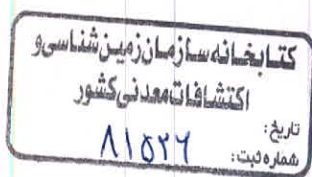 کتابخانه سازمان زمین شناسی و
اکتشافات معدنی کشور
تاریخ:
شماره ثبت: ۸۱۵۲۶